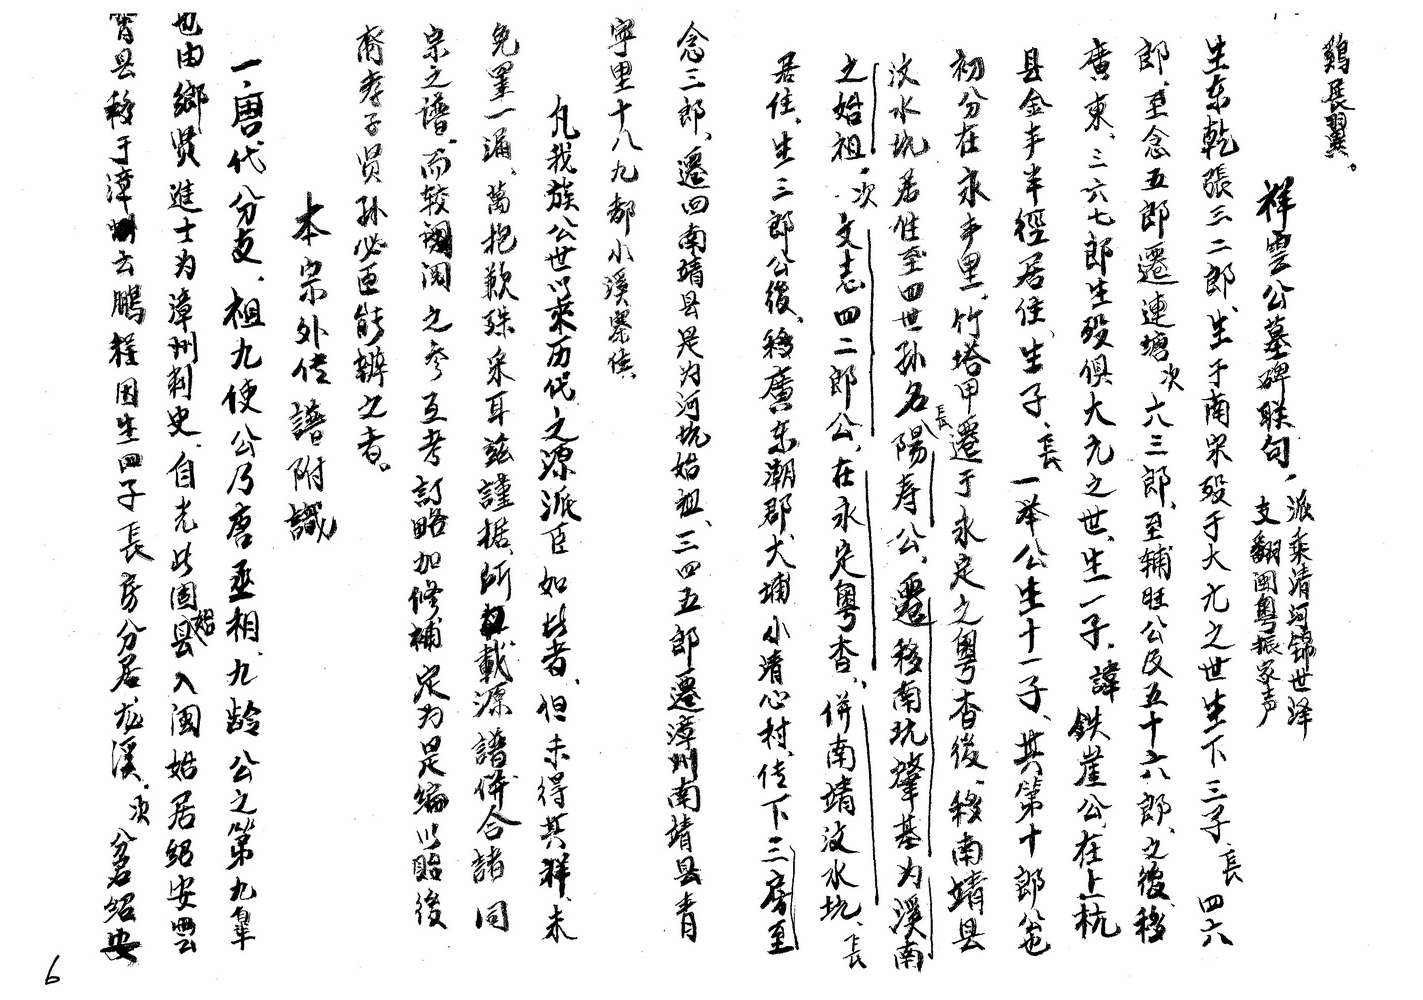 鷄展翼。
祥雲公墓碑联句，派乘清河錦世泽
支翻閩粵振家声
生东乾張三二郎、生于南宋殁于大元之世生下三子長四六
郎、至念五郎遷連塘次六三郎、至辅旺公及五十六郎、之後移
廣東、三六七郎生殁俱大元之世、生一子、諱鉄崖公、在上杭
县金丰半徑居住、生子、長一举公生十一子、其第十郎公也
初分在永丰里、竹塔甲遷于永定之粵杳後、移南靖县
汶水坑居住至四世孫名長陽寿公、遷移南坑肇基为溪南
之始祖、次文志四二郎公、在永定粵杳、併南靖汶水坑、長
居住、生三郎公後、移廣东潮郡、大埔小清心村、传下三房至
念三郎、遷回南靖县是为河坑始祖、三四五郎遷漳州南靖县青
宁里十八九都小溪寮住、
凡我族公世以来历代之源派臣如此者、但未得其祥、未
免罣一漏、萬抱歉殊采耳兹謹据、所載源譜併合諸同
宗之譜、而较之参互考訂略加修補定为是编以貽後
裔孝子贤孙必臣能辨之者。
本宗外传譜附識
一、唐代分支、祖九使公乃唐丞相、九龄公之第九皐
也由鄉贤進士为漳州刺史、自光此固县始入闽始居绍安雲
霄县移于漳州去鵬程因生四子長房分居龙溪、次分居绍安
6